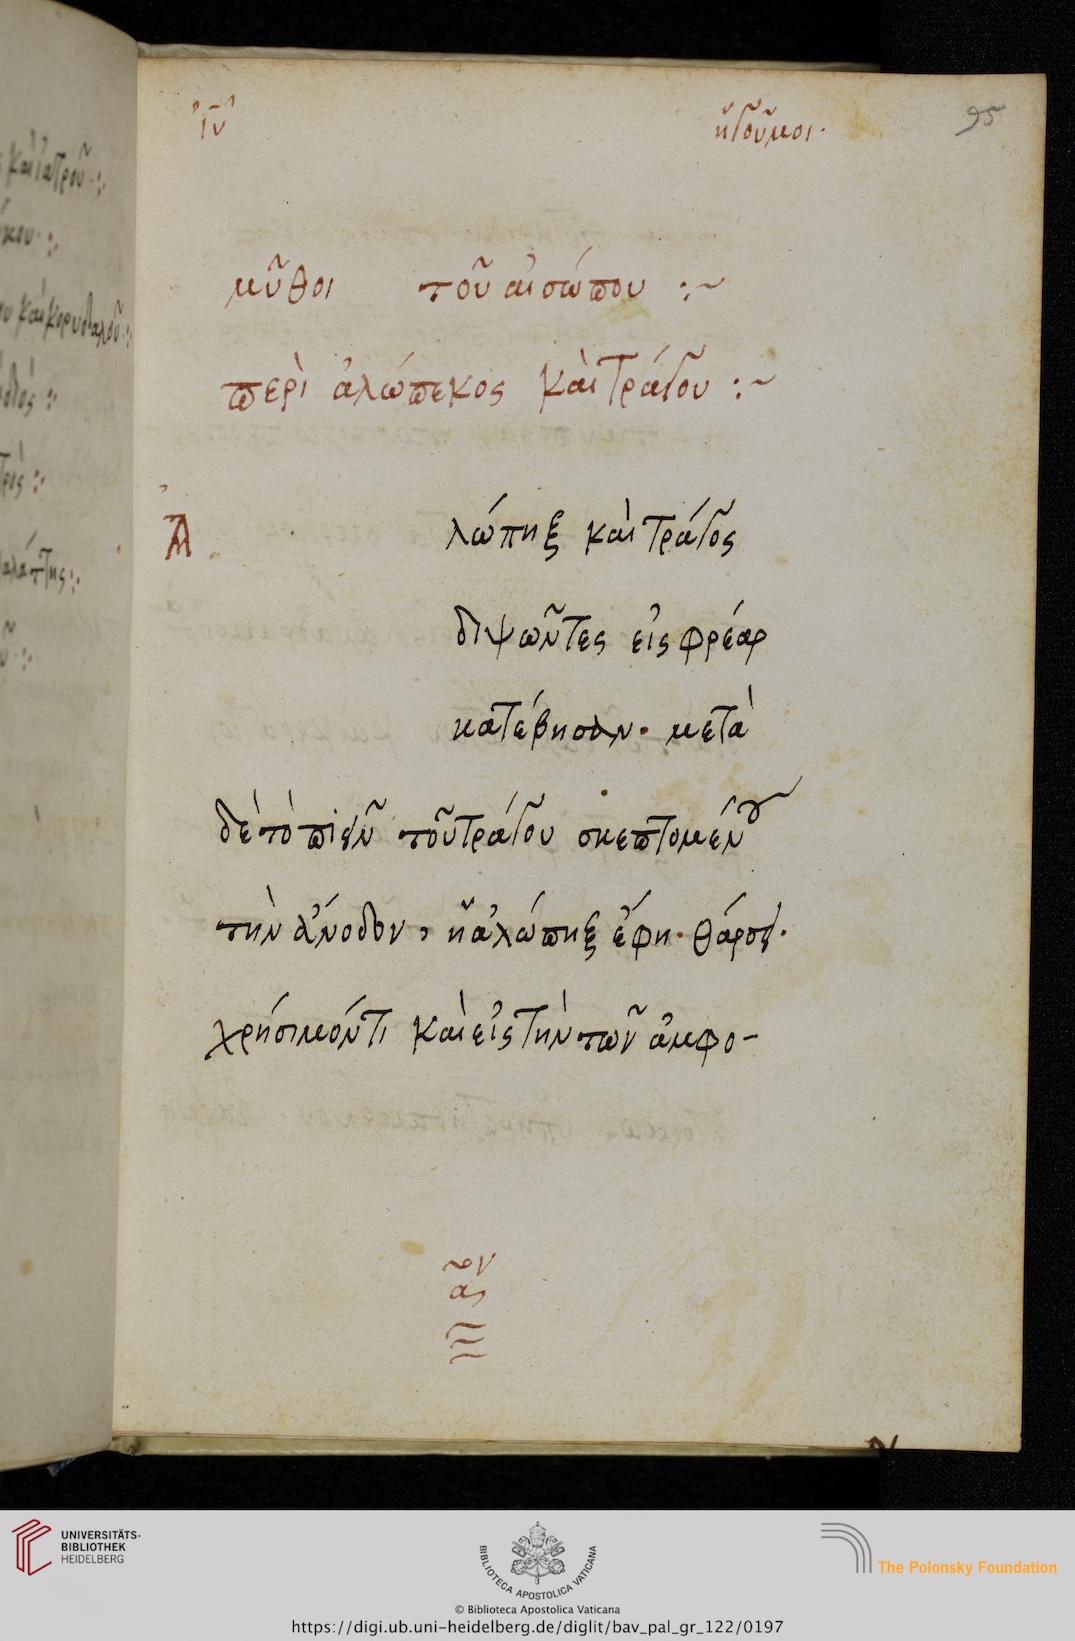 ἡγοῦμοι·
95
μῦθοι τοῦ αἰσώπου :~
περὶ ἀλώπεκος καὶ τράγου :~
Ἀ
λώπηξ καὶ τράγος
διψῶντες εἰς φρέαρ
κατέβησαν· μετὰ
δὲ τὸ πιεῖν τοῦ τράγου σκεπτομένου
τὴν ἄνοδον, ἡ ἀλώπηξ ἔφη· θάρσει·
χρήσιμόν τι καὶ εἰς τὴν τῶν ἀμφο-
καὶ ἰατροῦ :
ου καὶ κορυδαλοῦ :
UNIVERSITÄTS-
BIBLIOTHEK
HEIDELBERG
BIBLIOTECA APOSTOLICA VATICANA
The Polonsky Foundation
© Biblioteca Apostolica Vaticana
https://digi.ub.uni-heidelberg.de/diglit/bav_pal_gr_122/0197